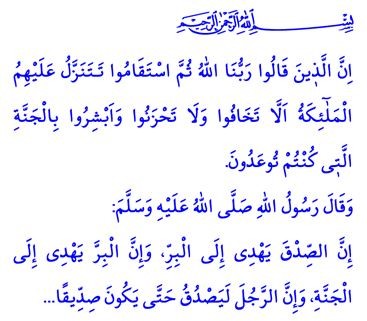 بِسْمِ اللهِ الرَّحْمٰنِ الرَّحِيمِ
اِنَّ الَّذٖينَ قَالُوا رَبُّنَا اللهُ ثُمَّ اسْتَقَامُوا تَتَنَزَّلُ عَلَيْهِمُ
الْمَلٰٓئِكَةُ اَلَّا تَخَافُوا وَلَا تَحْزَنُوا وَاَبْشِرُوا بِالْجَنَّةِ
الَّتٖى كُنْتُمْ تُوعَدُونَ.
وَقَالَ رَسُولُ اللهِ صَلَّى اللهُ عَلَيْهِ وَسَلَّمَ:
إِنَّ الصِّدْقَ يَهْدِى إِلَى الْبِرِّ، وَإِنَّ الْبِرَّ يَهْدِى إِلَى
الْجَنَّةِ، وَإِنَّ الرَّجُلَ لَيَصْدُقُ حَتَّى يَكُونَ صِدِّيقًا...